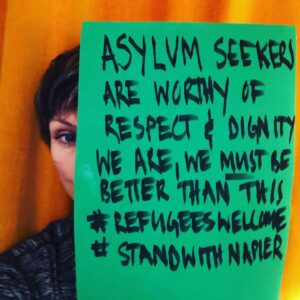 ASYLUM SEEKERS
ARE WORTHY OF
RESPECT & DIGNITY
WE ARE, WE MUST BE
BETTER THAN THIS
#REFUGEESWELCOME
#STANDWITHNAPIER